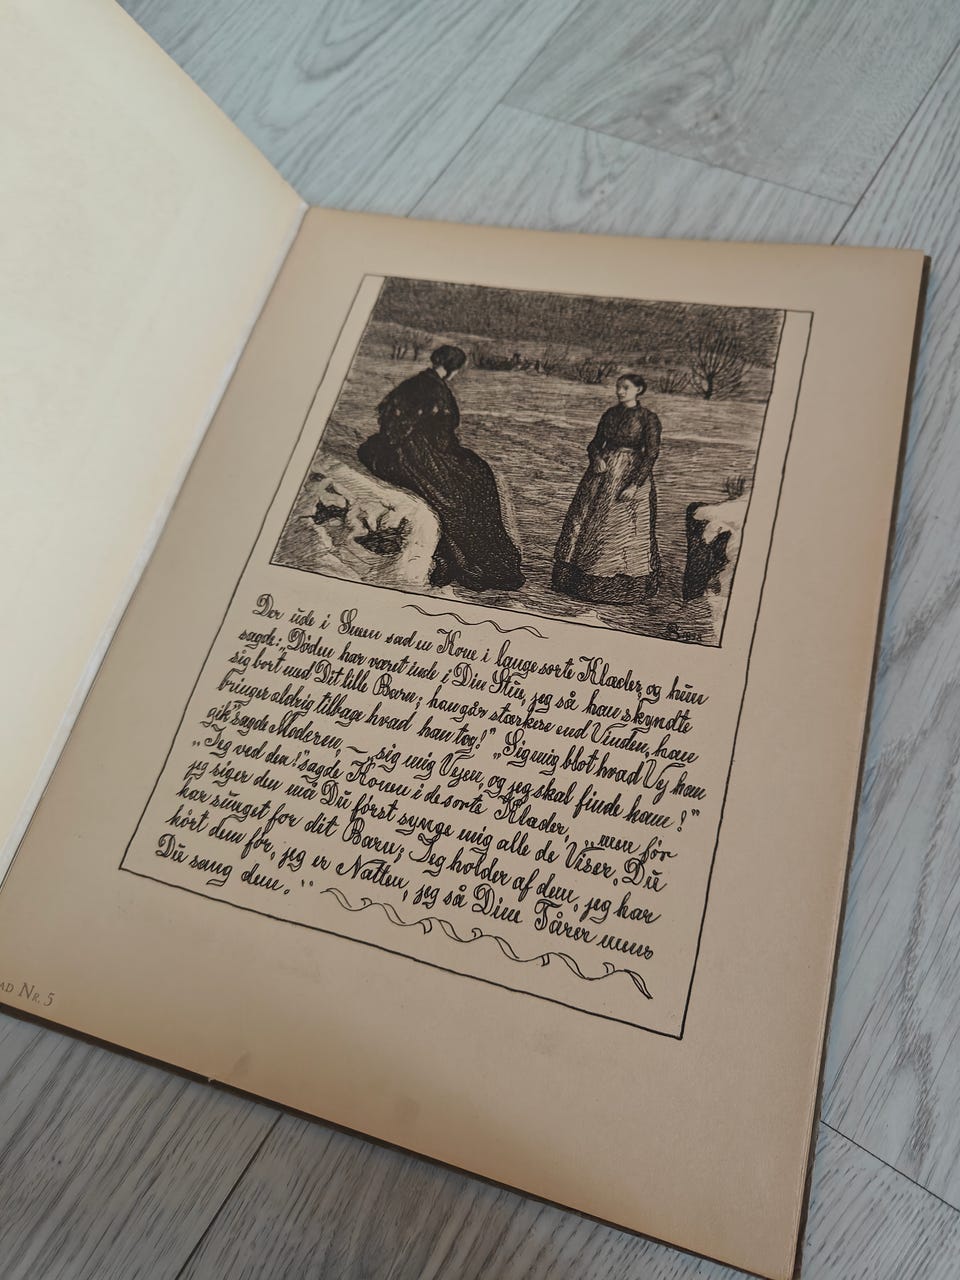 Der ude i Sneen sad en Kone i lange sorte Klæder, og hun
sagde: „Døden har været inde i Din Stue, jeg så han skyndte
sig bort med Dit lille Barn; han går stærkere end Vinden, han
bringer aldrig tilbage hvad han tog!” „Sig mig blot hvad Vej han
gik” sagde Moderen, — „sig mig Vejen, og jeg skal finde ham!”
„Jeg ved den!” sagde Konen i de sorte Klæder, „men før
jeg siger den må Du først synge mig alle de Viser, Du
har sunget for dit Barn; Jeg holder af dem, jeg har
hørt dem før, jeg er Natten, jeg så Dine Tårer mens
Du sang dem.”
NR. 5